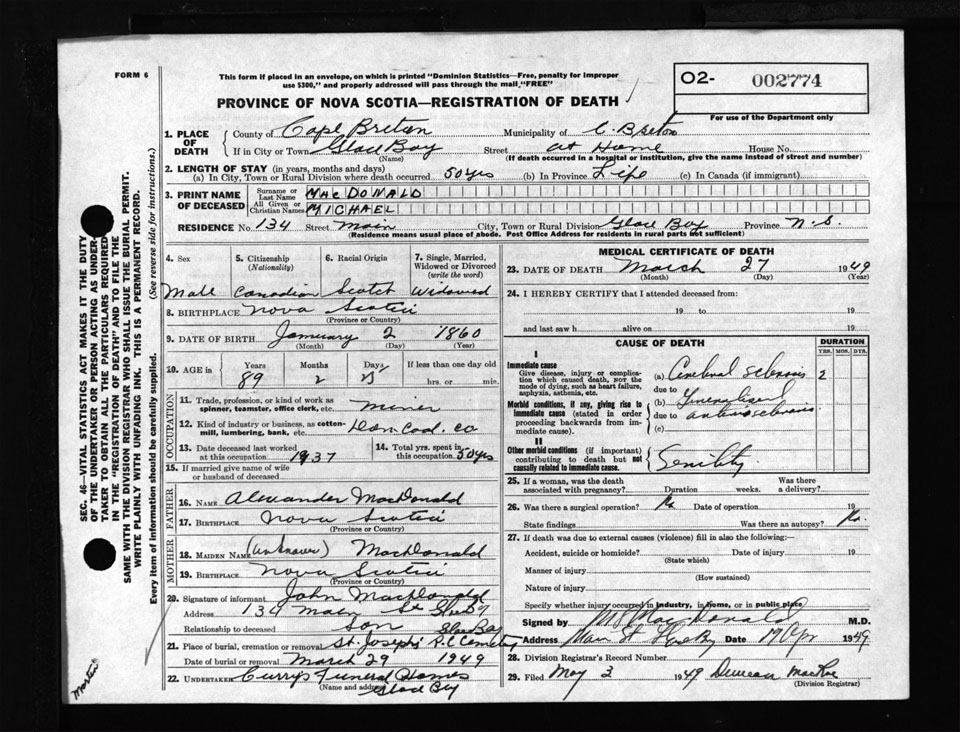 FORM 6
This form if placed in an envelope, on which is printed "Dominion Statistics—Free, penalty for improper
use $300," and properly addressed will pass through the mail "FREE"
O2- 002774
For use of the Department only
PROVINCE OF NOVA SCOTIA—REGISTRATION OF DEATH
1. PLACE OF DEATH
County of Cape Breton Municipality of C. Breton
If in City or Town Glace Bay Street at Home House No.
(Name) (If death occurred in a hospital or institution, give the name instead of street and number)
2. LENGTH OF STAY (in years, months and days)
(a) In City, Town or Rural Division where death occurred 50 yrs (b) In Province Life (c) In Canada (if immigrant)
3. PRINT NAME OF DECEASED
Surname or Last Name MACDONALD
All Given or Christian Names MICHAEL
RESIDENCE No. 134 Street Main City, Town or Rural Division Glace Bay Province N.S.
(Residence means usual place of abode. Post Office Address for residents in rural parts not sufficient)
4. Sex 5. Citizenship (Nationality) 6. Racial Origin 7. Single, Married, Widowed or Divorced (write the word)
Male Canadian Scotch Widowed
8. BIRTHPLACE Nova Scotia
(Province or Country)
9. DATE OF BIRTH January 2 1860
(Month) (Day) (Year)
10. AGE in Years Months Days If less than one day old
89 2 25 hrs. or min.
OCCUPATION
11. Trade, profession, or kind of work as spinner, teamster, office clerk, etc. miner
12. Kind of industry or business, as cotton-mill, lumbering, bank, etc. Dom Coal. Co
13. Date deceased last worked at this occupation 1937 14. Total yrs. spent in this occupation 50 yrs
15. If married give name of wife or husband of deceased
FATHER
16. Name Alexander MacDonald
17. Birthplace Nova Scotia
(Province or Country)
MOTHER
18. Maiden Name (unknown) MacDonald
19. Birthplace Nova Scotia
(Province or Country)
20. Signature of informant John MacDonald
Address 134 Main St
Glace Bay
Relationship to deceased Son
21. Place of burial, cremation or removal St. Joseph's R.C Cemetery
Date of burial or removal March 29 1949
22. UNDERTAKER Curry's Funeral Homes
(Name and address) Glace Bay
MEDICAL CERTIFICATE OF DEATH
23. DATE OF DEATH March 27 1949
(Month) (Day) (Year)
24. I HEREBY CERTIFY that I attended deceased from:
19 to 19
and last saw h alive on 19
CAUSE OF DEATH DURATION
YRS. MOS. DYS.
I
Immediate cause
Give disease, injury or complication which caused death, not the mode of dying, such as heart failure, asphyxia, asthenia, etc.
(a) Cerebral sclerosis 2
due to
Morbid conditions, if any, giving rise to immediate cause (stated in order proceeding backwards from immediate cause).
(b) Generalized
due to arteriosclerosis
(c)
II
Other morbid conditions (if important) contributing to death but not causally related to immediate cause.
Senility
25. If a woman, was the death associated with pregnancy? Duration weeks. Was there a delivery?
26. Was there a surgical operation? No Date of operation 19
State findings Was there an autopsy? No.
27. If death was due to external causes (violence) fill in also the following:—
Accident, suicide or homicide? Date of injury 19
(State which)
Manner of injury
(How sustained)
Nature of injury
Specify whether injury occurred in industry, in home, or in public place
Signed by MacDonald M.D.
Address Main St Glace Bay Date 19 Apr 1949
28. Division Registrar's Record Number
29. Filed May 3 1949 Duncan MacRae
(Division Registrar)
SEC. 46—VITAL STATISTICS ACT MAKES IT THE DUTY
OF THE UNDERTAKER OR PERSON ACTING AS UNDER-
TAKER TO OBTAIN ALL THE PARTICULARS REQUIRED
IN THE "REGISTRATION OF DEATH" AND TO FILE THE
SAME WITH THE DIVISION REGISTRAR WHO SHALL ISSUE THE BURIAL PERMIT.
WRITE PLAINLY WITH UNFADING INK. THIS IS A PERMANENT RECORD.
Every item of information should be carefully supplied. (See reverse side for instructions.)